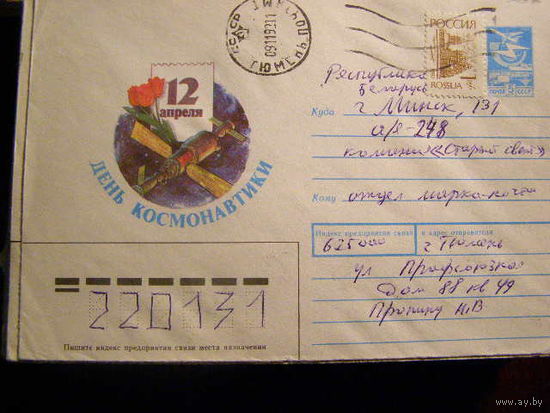 ТЮМЕНЬ
091192
РОССИЯ
ROSSIJA
ПОЧТА 5 СССР
12
апреля
ДЕНЬ КОСМОНАВТИКИ
Республика
Беларусь
Куда г Минск, 131
а/я-248
компания «Старый свет»
Кому отдел марка-почтой
Индекс предприятия связи и адрес отправителя
625000 г Тюмень
ул Профсоюзная
Дом 88 кв 49
Н.В
220131
Пишите индекс предприятия связи места назначения
www.ay.by